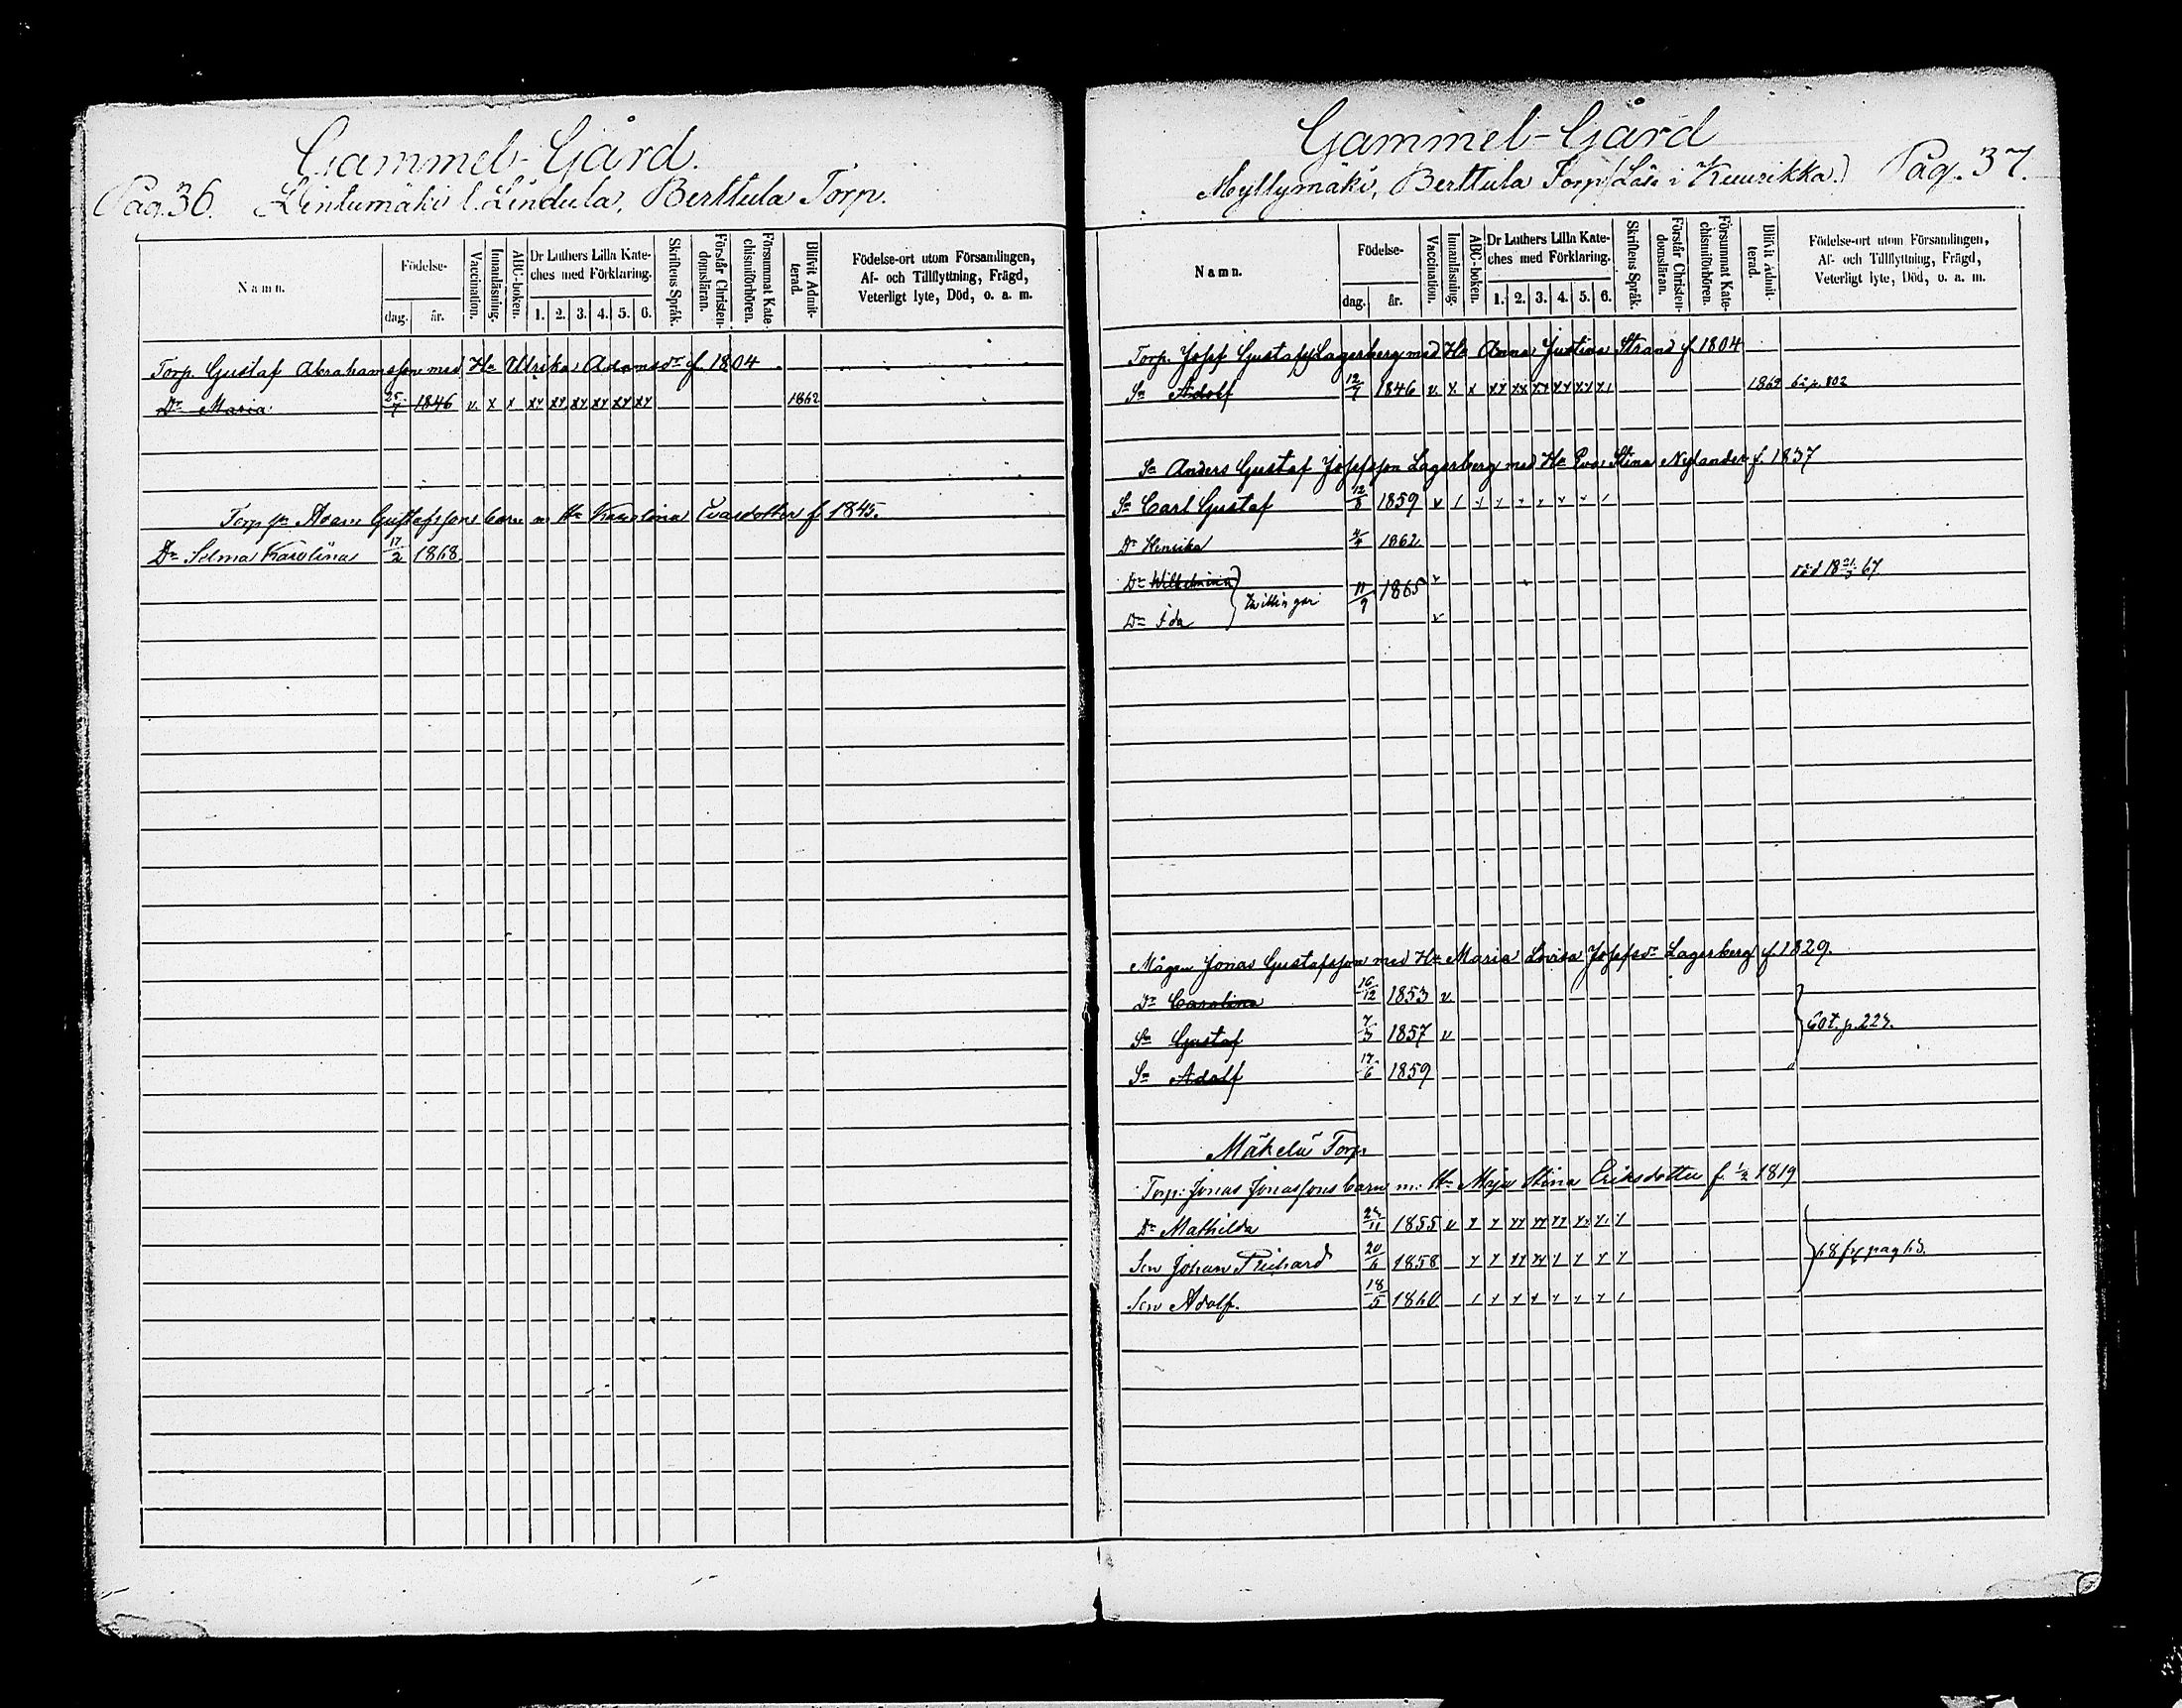 Gammel-Gård.
Pag. 36. Lintumäki l. Lindula, Berttula Torp.
Namn. Födelse- dag. år. Vaccination. Innanläsning. ABC-boken. Dr Luthers Lilla Kateches med Förklaring. 1. 2. 3. 4. 5. 6. Skriftens Språk. Förstår Christendomsläran. Försummat Katechismiförhören. Blifvit Admitterad. Födelse-ort utom Församlingen, Af- och Tillflyttning, Frägd, Veterligt lyte, Död, o. a. m.
Torp. Gustaf Abrahamsson med Hu Ulrika Adamsdr f. 1804
Dr Maria 25/7 1846 v. x x xx xx xx xx xx xx 1862
Torp. sn Adam Gustafssons barn m Hu Karolina Evasdotter f 1845.
Dr Selma Karolina 17/2 1868
Gammel-Gård
Myllymäki, Berttula Torp (Läs i Kuurikka.) Pag. 37.
Namn. Födelse- dag. år. Vaccination. Innanläsning. ABC-boken. Dr Luthers Lilla Kateches med Förklaring. 1. 2. 3. 4. 5. 6. Skriftens Språk. Förstår Christendomsläran. Försummat Katechismiförhören. Blifvit Admitterad. Födelse-ort utom Församlingen, Af- och Tillflyttning, Frägd, Veterligt lyte, Död, o. a. m.
Torp. Josef Gustafss Lagerberg med Hu Anna Justina Strand f. 1804
Sn Adolf 12/7 1846 v. x x xx xx xx xx xx x
Sn Anders Gustaf Josefsson Lagerberg med Hu Eva Stina Nylander f. 1837
Sn Carl Gustaf 12/8 1859 v
Dr Henrika 1862
Dr Wilhelmina } Tvillingar 11/9 1865 v död 18 21/3 67
Dr Ida v
Mågen Jonas Gustafsson med Hu Maria Lovisa Josefsdr Lagerberg f. 1829.
Dr Carolina 16/12 1853 v.
Sn Gustaf 7/3 1857 v } 60 t. p. 223.
Sn Adolf 17/6 1859
Mäkelä Torp.
Torp: Jonas Jonassons barn m: Hu Maja Stina Eriksdotter f. 1/2 1819
Dr Mathilda 1855 v x x xx xx xx xx x x
Son Johan Richard 20/6 1858 x x xx xx x x x x
Son Adolf. 18/5 1860